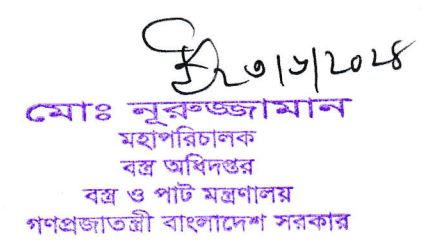 ২৩|৬|২০২৪
মোঃ নূরুজ্জামান
মহাপরিচালক
বস্ত্র অধিদপ্তর
বস্ত্র ও পাট মন্ত্রণালয়
গণপ্রজাতন্ত্রী বাংলাদেশ সরকার